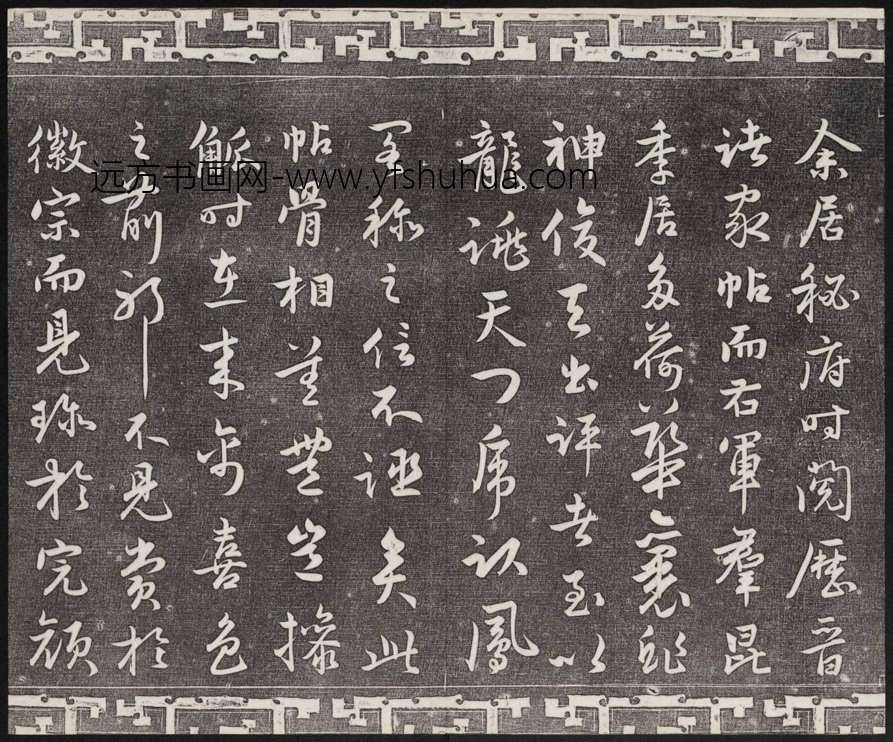 余居秘府时阅历晋
诸家帖而右军群昆
季居多荷华裹
神俊天出评者至以
龙跳天门虎卧凤
阁称之信不诬矣此
帖骨相差岂操
觚时在未喜色
之前耶不见赏于
徽宗而见珍于完颜
远方书画网-www.yfshuhua.com